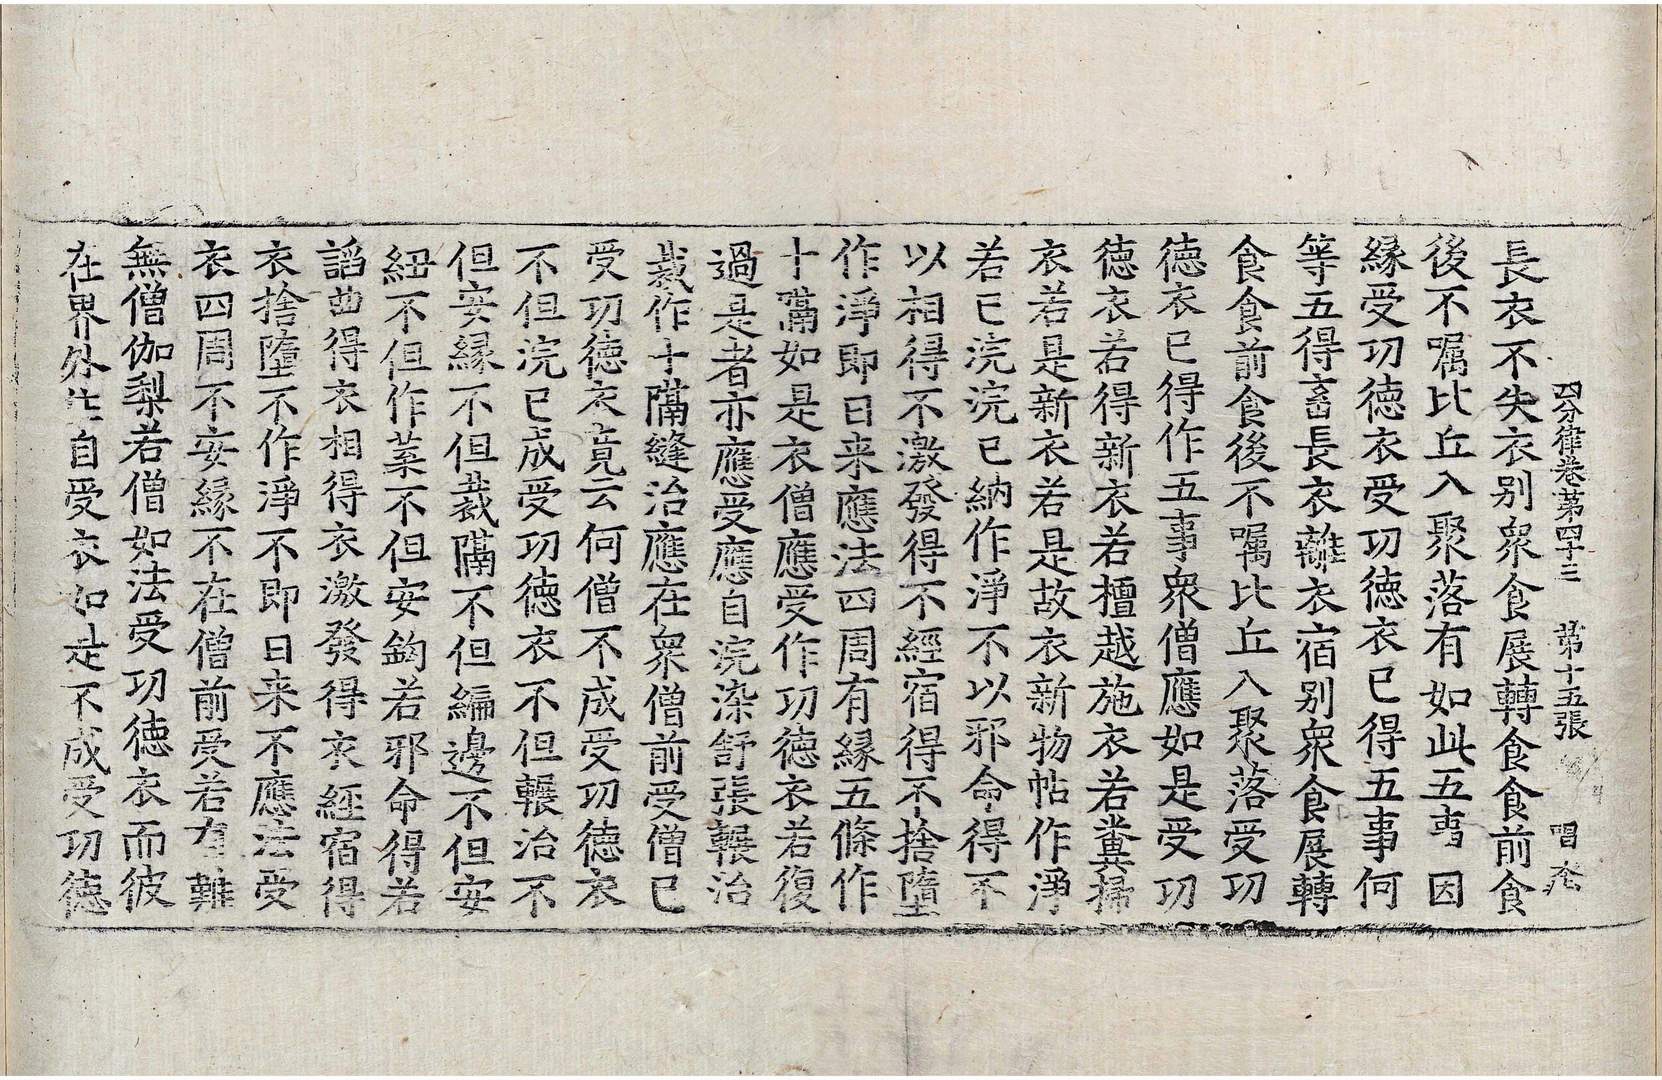 四分律卷第四十三 第十五張 唱
長衣不失衣別衆食展轉食食前食
後不囑比丘入聚落有如此五事因
縁受功德衣受功德衣已得五事何
等五得畜長衣離衣宿別衆食展轉
食食前食後不囑比丘入聚落受功
德衣已得作五事衆僧應如是受功
德衣若得新衣若檀越施衣若糞掃
衣若是新衣若是故衣新物帖作淨
若已浣浣已納作淨不以邪命得不
以相得不激發得不經宿得不捨墮
作淨即日来應法四周有縁五條作
十隔如是衣僧應受作功德衣若復
過是者亦應受應自浣染舒張輾治
裁作十隔縫治應在衆僧前受僧已
受功德衣竟云何僧不成受功德衣
不但浣已成受功德衣不但輾治不
但安縁不但裁隔不但編邊不但安
紐不但作葉不但安鉤若邪命得若
謟曲得衣相得衣激發得衣經宿得
衣捨墮不作淨不即日来不應法受
衣四周不安縁不在僧前受若有難
無僧伽梨若僧如法受功德衣而彼
在界外住自受衣如是不成受功德